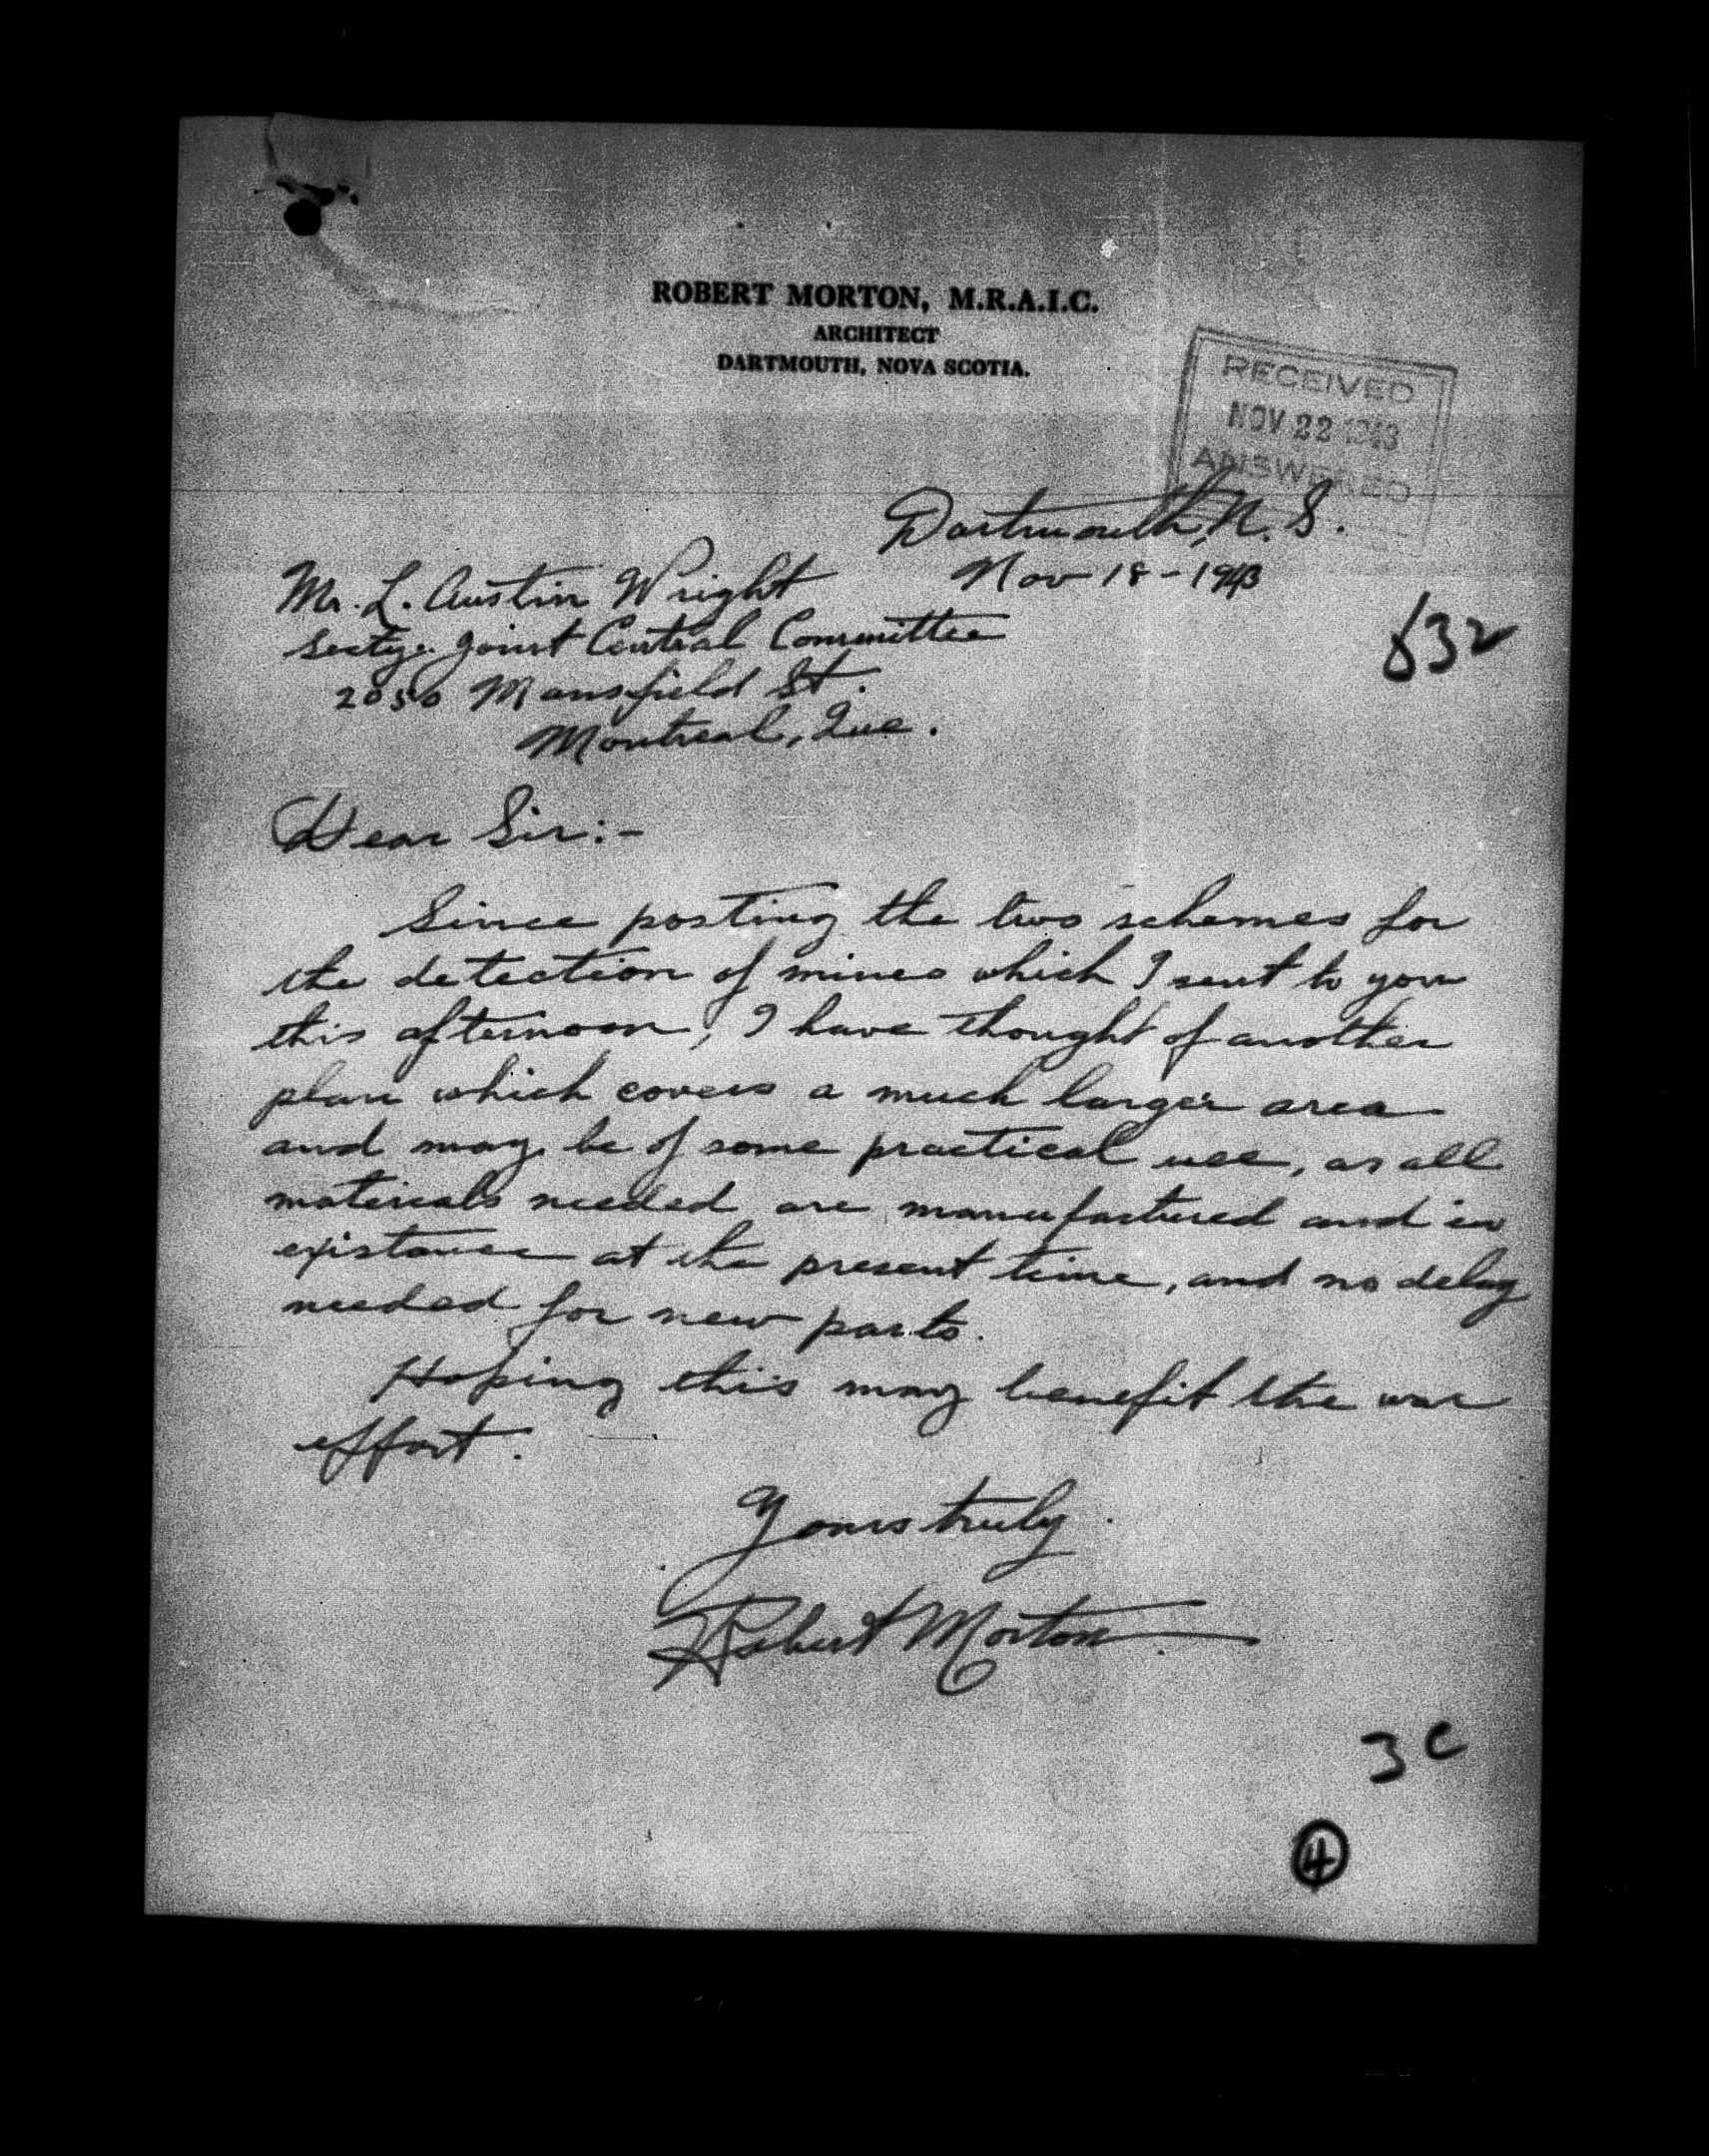 ROBERT MORTON, M.R.A.I.C.
ARCHITECT
DARTMOUTH, NOVA SCOTIA.
RECEIVED
NOV 22 1943
ANSWERED
Dartmouth, N. S.
Nov 18 - 1943
Mr. L. Austin Wright
Secty. Joint Central Committee
2050 Mansfield St.
Montreal, Que.
832
Dear Sir:-
Since posting the two schemes for
the detection of mines which I sent to you
this afternoon, I have thought of another
plan which covers a much larger area
and may be of some practical use, as all
materials needed are manufactured and in
existance at the present time, and no delay
needed for new parts.
Hoping this may benefit the war
effort.
Yours truly.
Robert Morton
3c
4